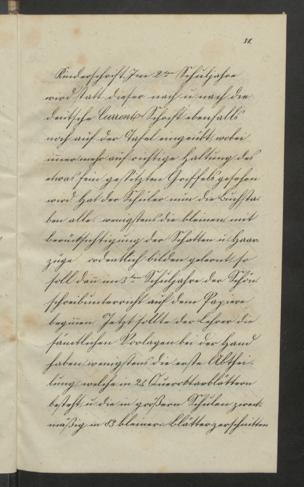 Kinderschrift. Im 2ten Schuljahre
wird statt dieser nach u nach die
deutsche Current Schrift ebenfalls
noch auf der Tafel eingeübt, wobei
immer mehr auf richtige Haltung des
etwas fein gespitzten Griffels gesehen
wird. Hat der Schüler nun die Buchsta
ben alle wenigstens die kleinen mit
berücksichtigung der Schatten u Haar
züge ordentlich bilden gelernt so
soll dann im 3ten Schuljahre der Schön
schreibunterricht auf dem Papiere
beginnen. Jetzt sollte der Lehrer die
sämtlichen Vorlagen bei der Hand
haben wenigstens die erste Abthei-
lung, welche in 25 Queroktavblättern
besteht u die in größern Schulen zweck
mäßig in kleinere Blätter zerschnitten